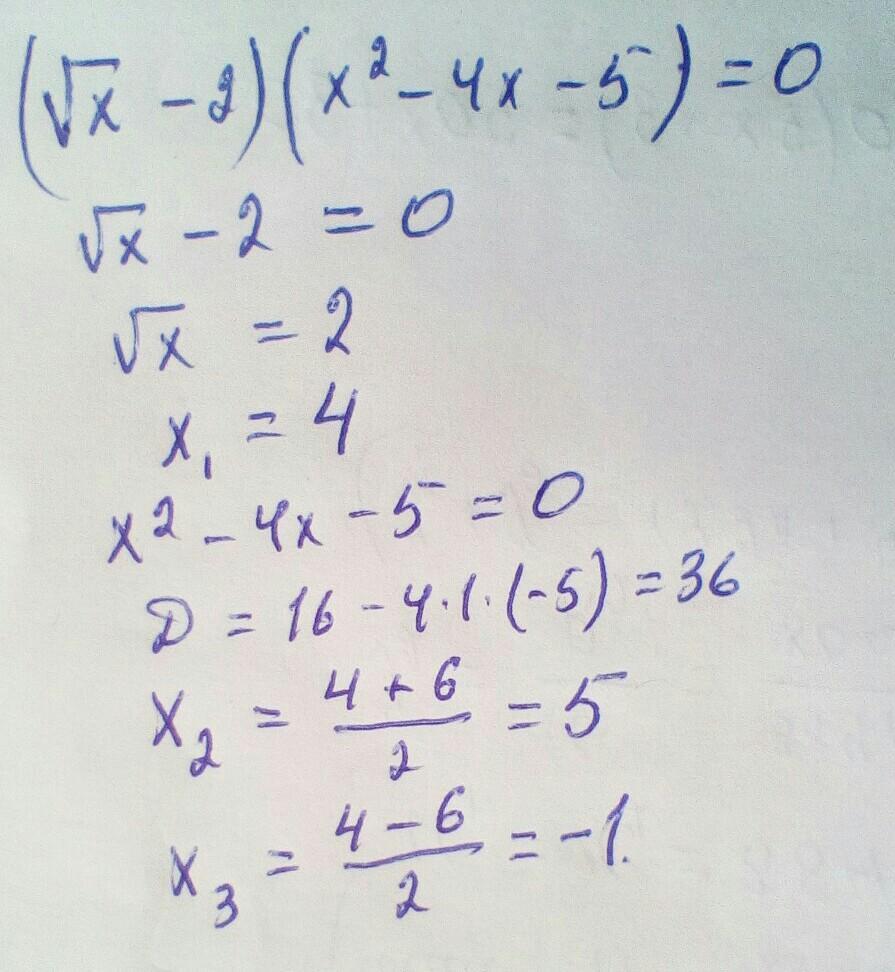 (√x - 2)(x² - 4x - 5) = 0
√x - 2 = 0
√x = 2
x₁ = 4
x² - 4x - 5 = 0
D = 16 - 4·1·(-5) = 36
x₂ = (4 + 6)/2 = 5
x₃ = (4 - 6)/2 = -1.